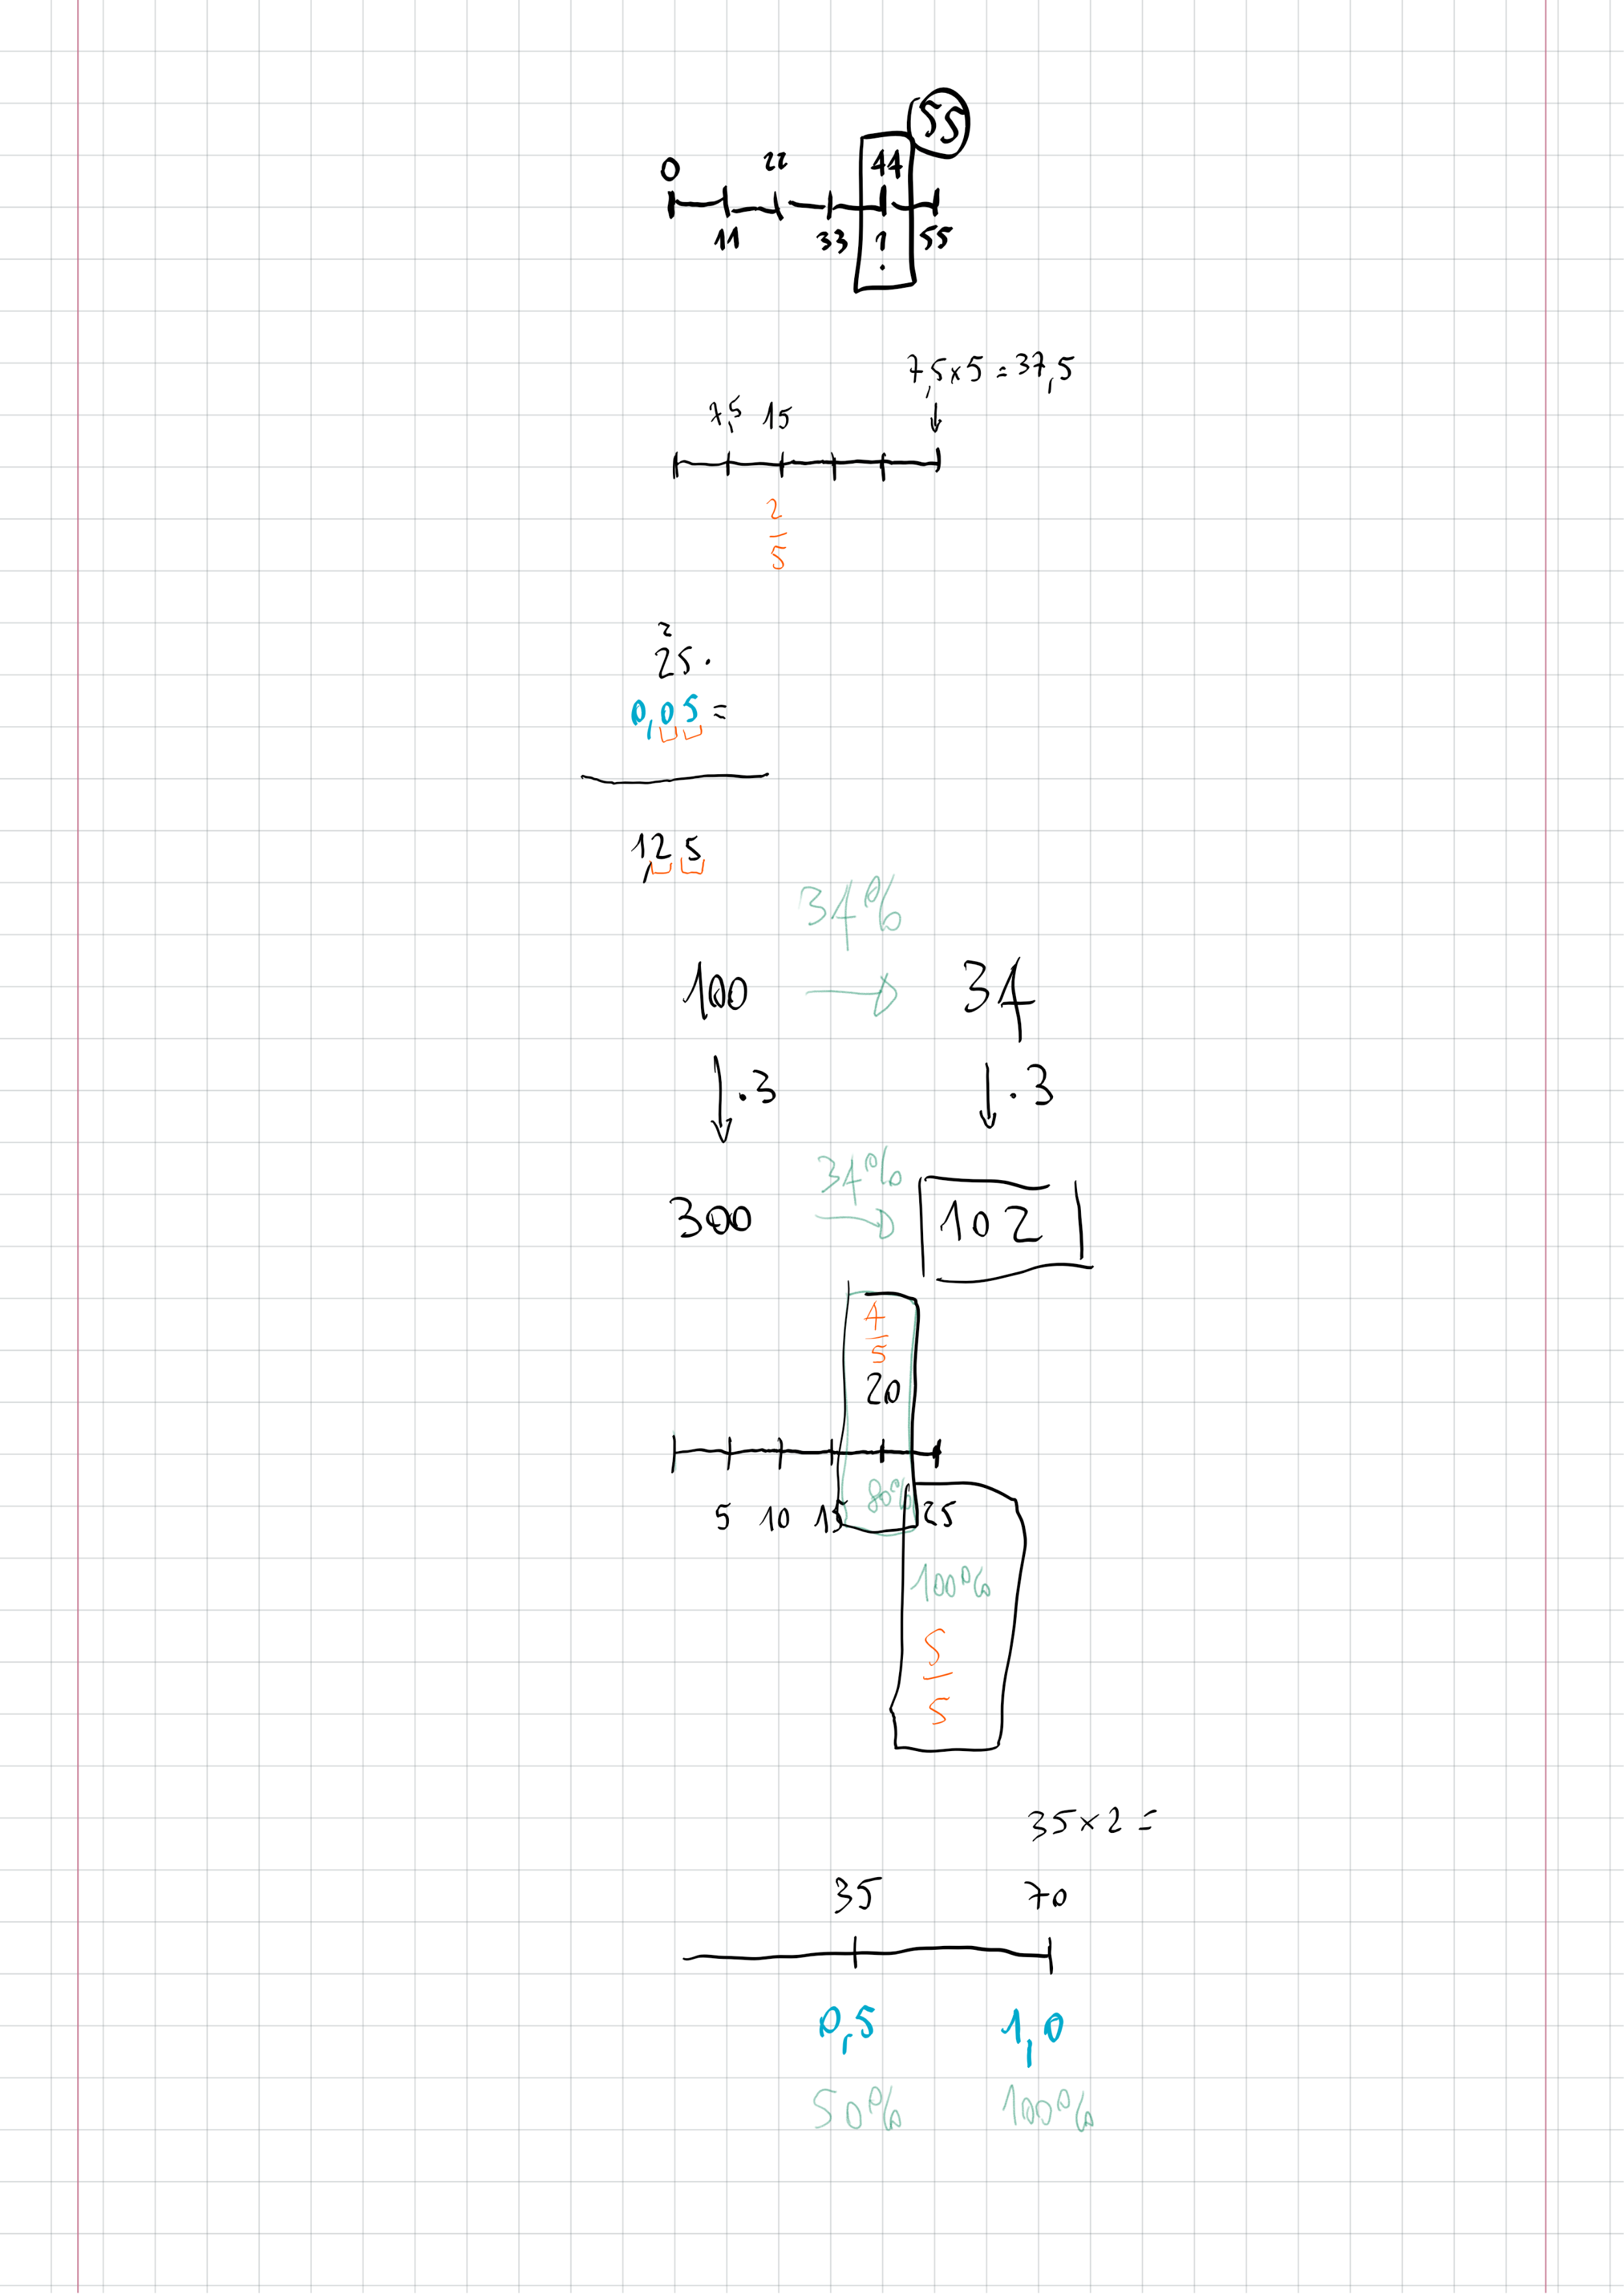 55
0 22 44
11 33 ? 55
7,5×5=37,5
7,5 15
2
5
2
25·
0,05=
1,25
34%
100 34
·3 ·3
34%
300 102
4
5
20
80%
5 10 15 25
100%
5
5
35×2=
35 70
0,5 1,0
50% 100%